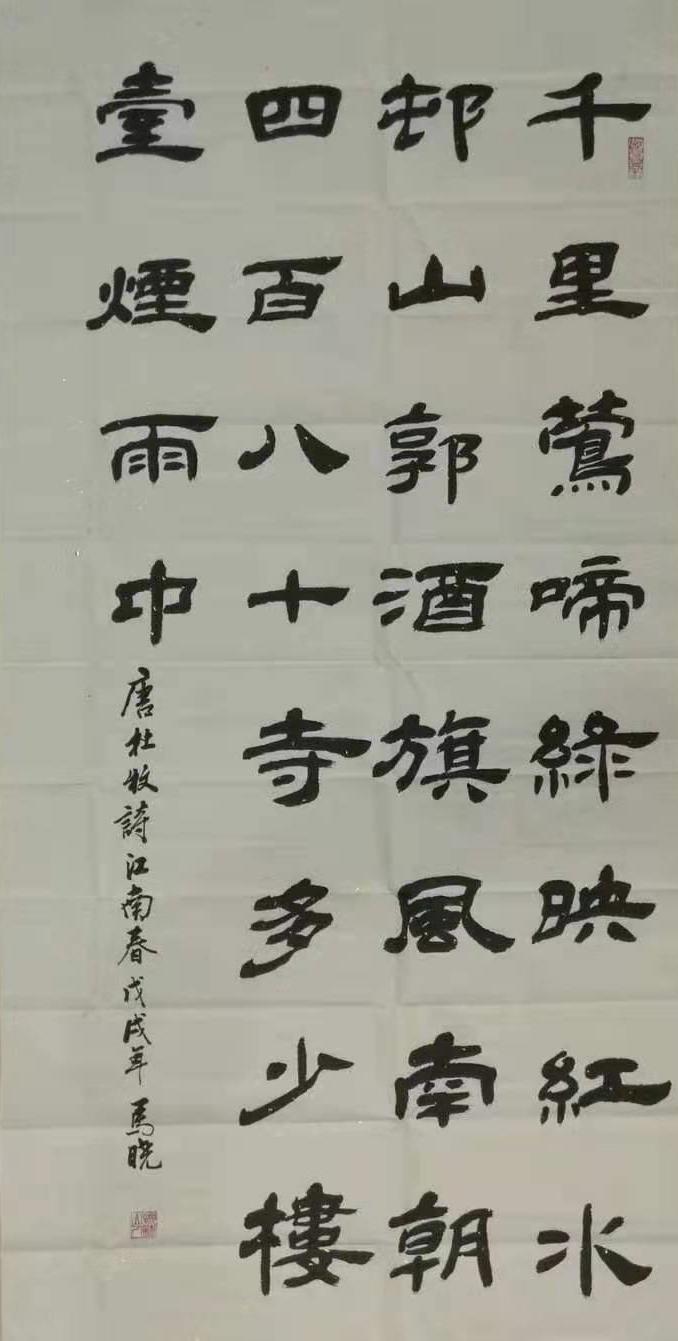 千里鶯啼綠映紅水
邨山郭酒旗風南朝
四百八十寺多少樓
臺煙雨中
唐杜牧詩江南春戊戌年 馬曉